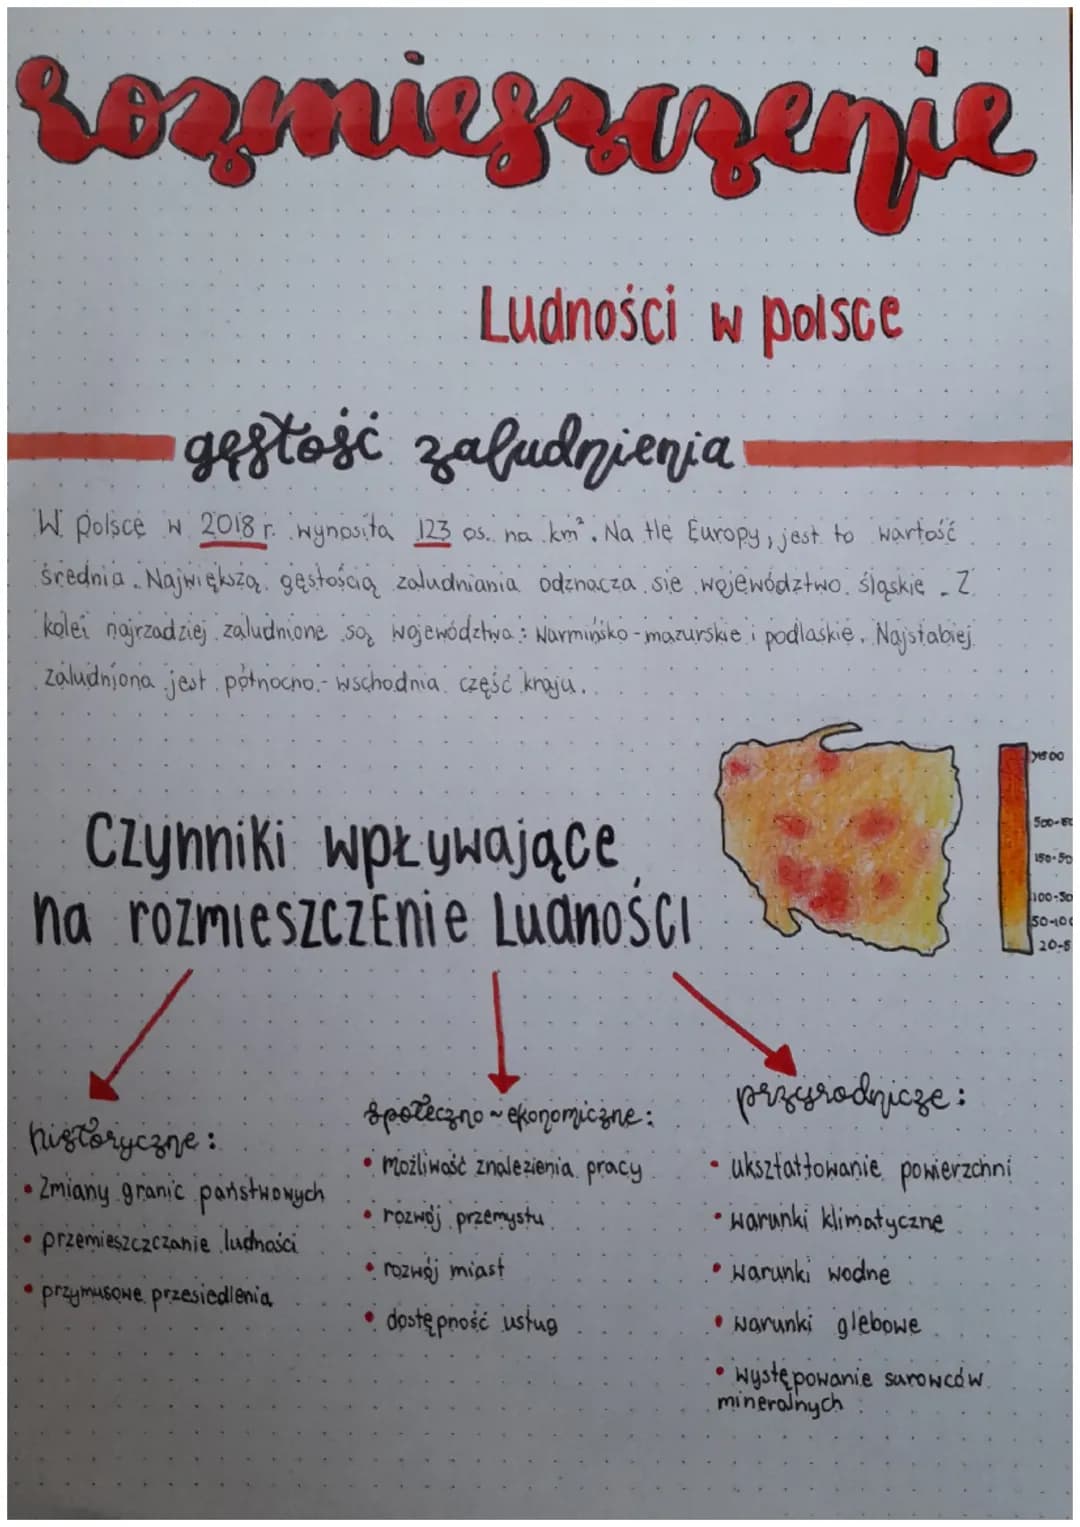 Rozmieszczenie
Ludności w polsce
gęstość zaludnienia
W Polsce w 2018 r. wynosiła 123 os. na km². Na tle Europy, jest to wartość
średnia. Największą gęstością zaludniania odznacza się województwo śląskie. Z
kolei najrzadziej zaludnione są województwa: Warmińsko-mazurskie i podlaskie. Najsłabiej
zaludniona jest północno-wschodnia część kraju.
>1500
500-
150-50
100-50
50-100
20-5
Czynniki wpływające
na rozmieszczEnie Ludności
historyczne:
• Zmiany granic państwowych
• przemieszczczanie ludności
• przymusowe przesiedlenia
społeczno~ekonomiczne:
• możliwość znalezienia pracy
• rozwój przemysłu
• rozwój miast
• dostępność usług
przyrodnicze:
• ukształtowanie powierzchni
• warunki klimatyczne
• warunki wodne
• warunki glebowe
• występowanie surowców
mineralnych